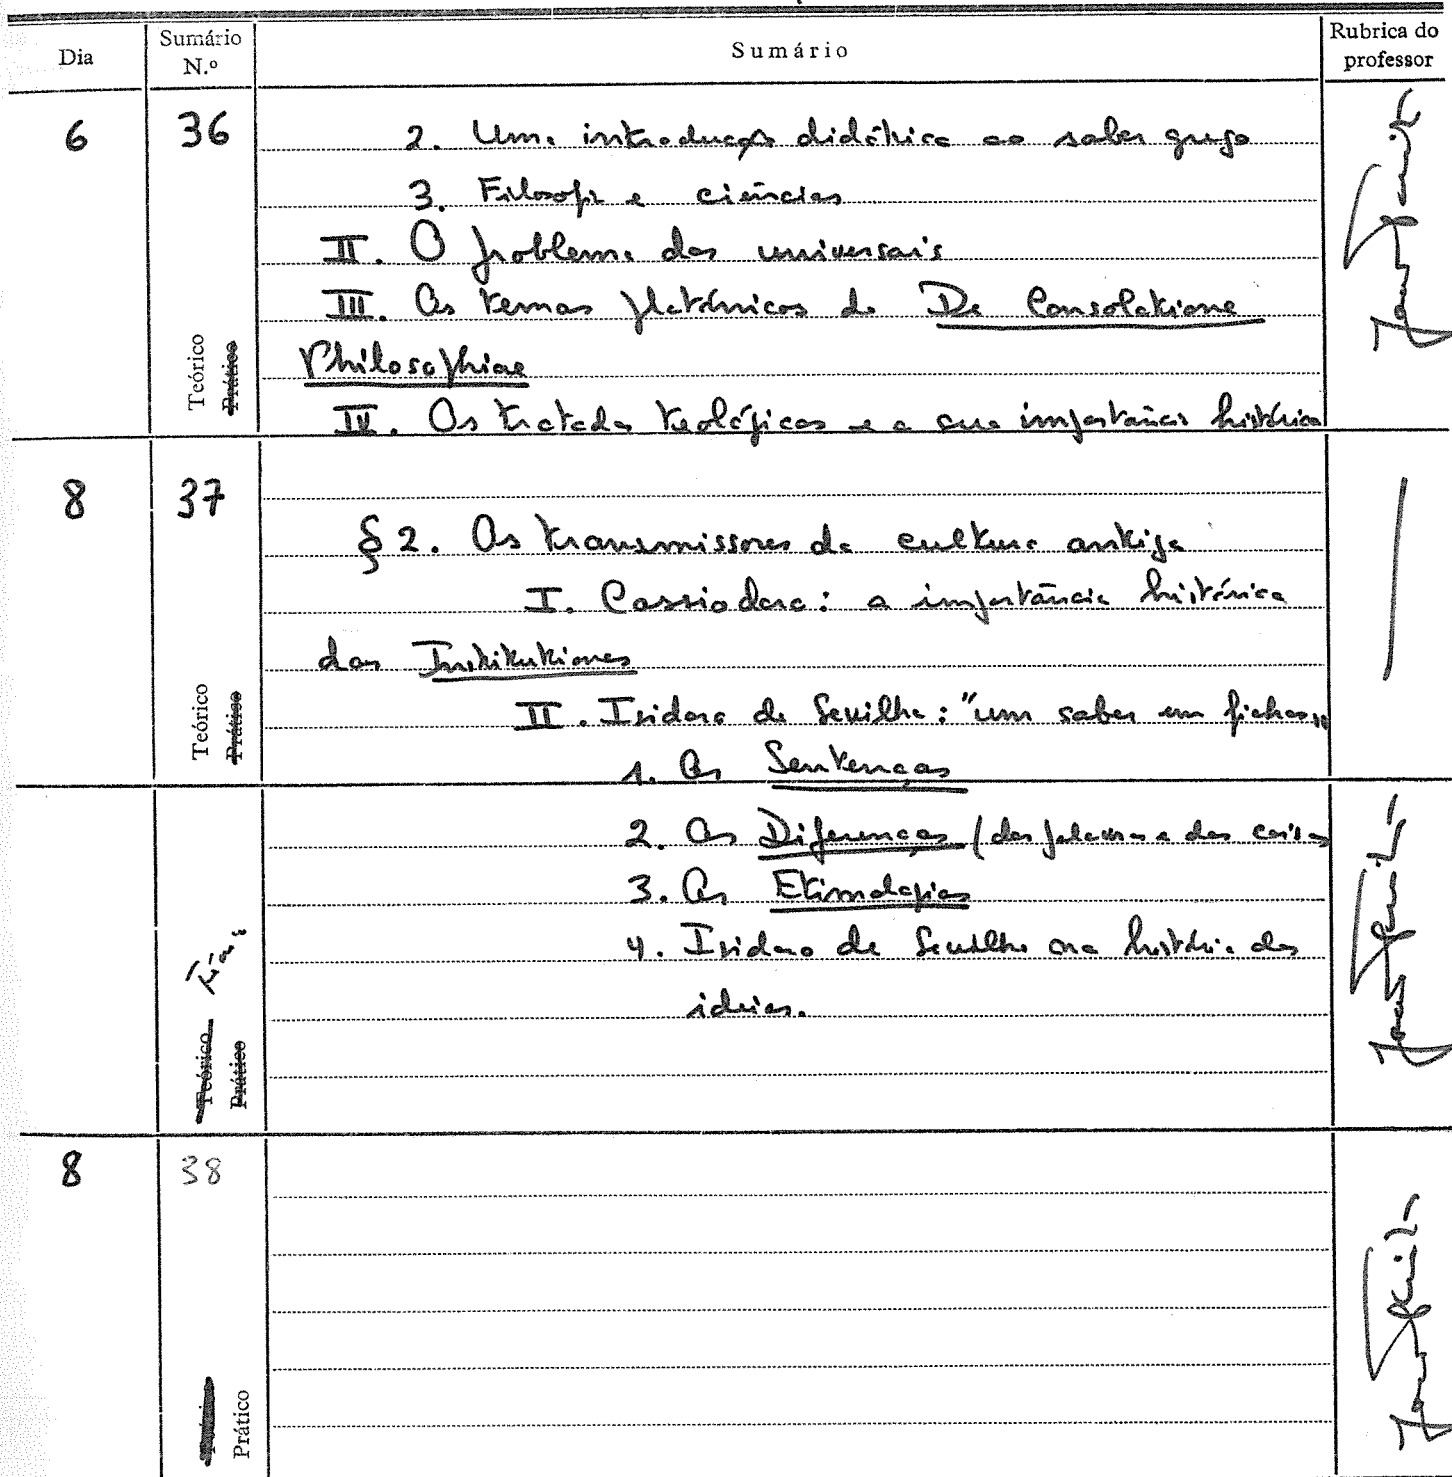 Dia
Sumário N.º
Sumário
Rubrica do professor
6
36
2. Uma introdução didáctica ao saber grego
3. Filosofia e ciências
II. O problema dos universais
III. Os temas platónicos do De Consolatione
Philosophiae
IV. Os tratados teológicos e a sua importância histórica
Teórico
Prático
8
37
§ 2. Os transmissores da cultura antiga
I. Cassiodoro: a importância histórica
das Institutiones
II. Isidoro de Sevilha: "um saber em fichas"
1. As Sentenças
Teórico
Prático
2. As Diferenças (das palavras e das coisas
3. As Etimologias
4. Isidoro de Sevilha na história das
ideias.
Teórico
Prático
8
38
Prático